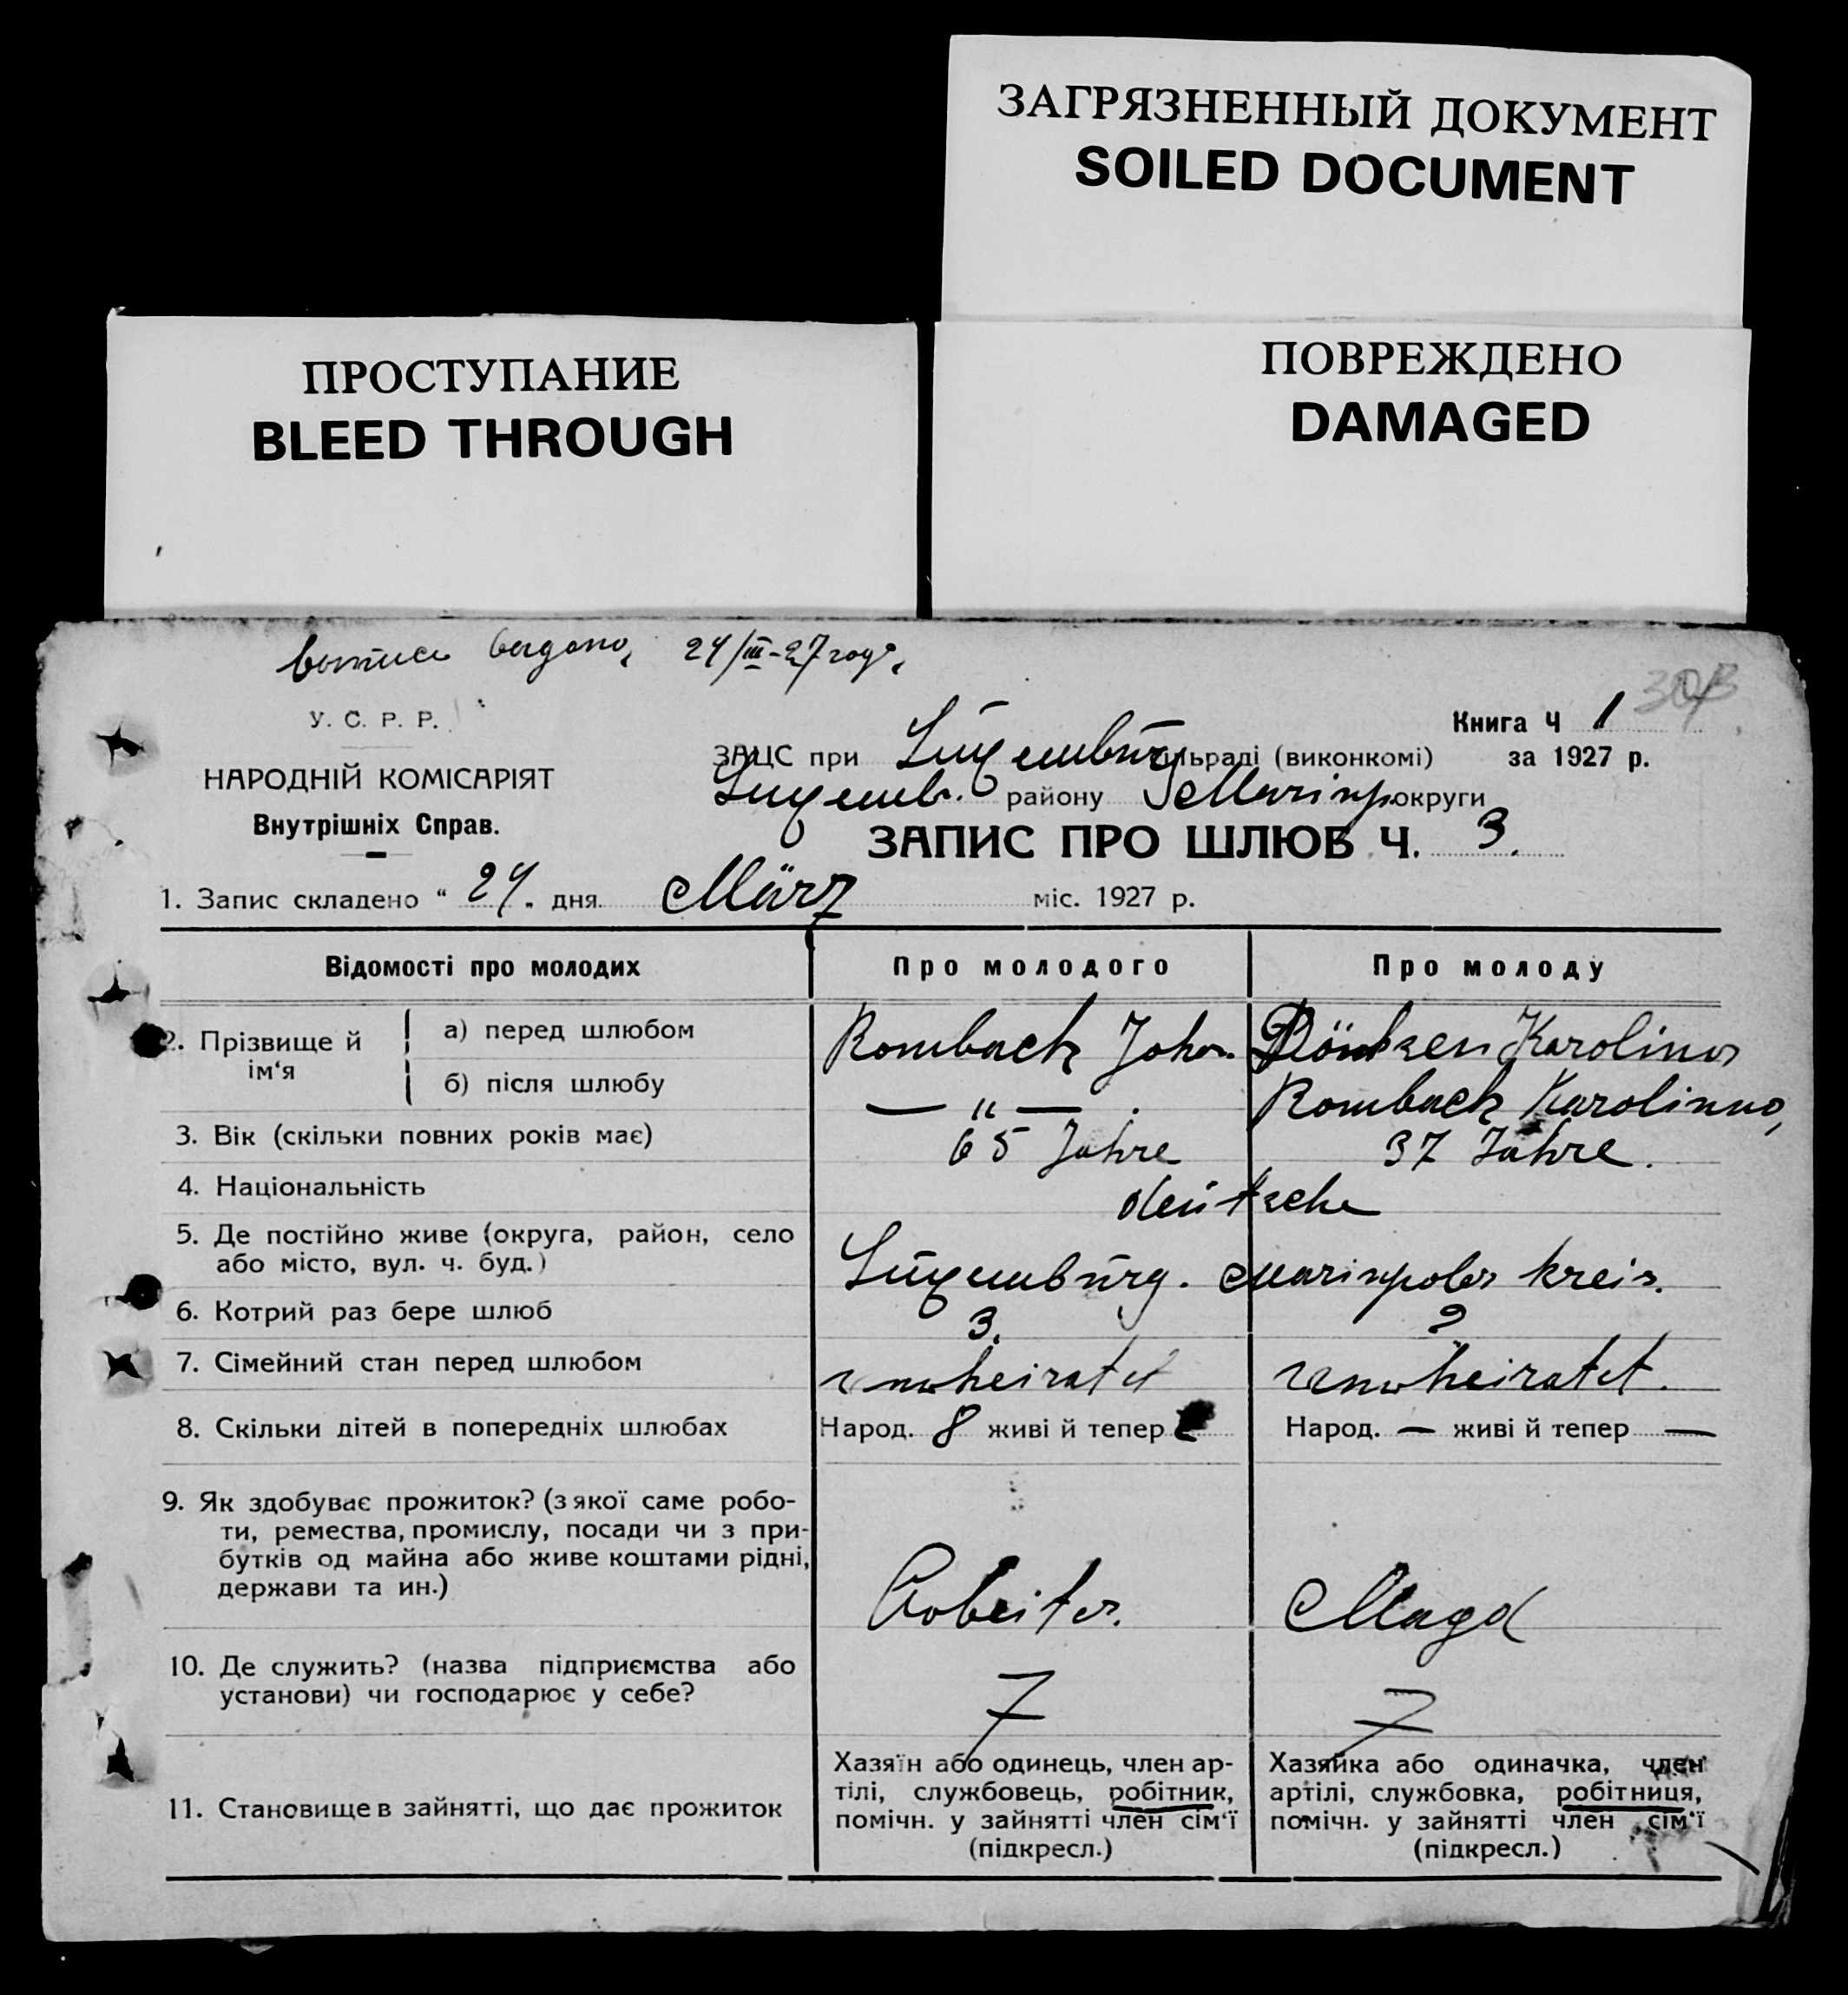 ЗАГРЯЗНЕННЫЙ ДОКУМЕНТ
SOILED DOCUMENT
ПРОСТУПАНИЕ
BLEED THROUGH
ПОВРЕЖДЕНО
DAMAGED
24/III-27 год
У. С. Р. Р.
НАРОДНІЙ КОМІСАРІЯТ
Внутрішніх Справ.
Книга Ч 1
за 1927 р.
ЗАЦС при Lüxembürg сільраді (виконкомі)
Lüxemb. району Mariup. округи
ЗАПИС ПРО ШЛЮБ Ч. 3.
1. Запис складено “ 24. дня März міс. 1927 р.
Відомості про молодих
Про молодого
Про молоду
2. Прізвище й ім‘я
а) перед шлюбом
Rombach Johan.
Karolina
б) після шлюбу
— " —
Rombach Karolina,
3. Вік (скільки повних років має)
65 Jahre
37 Jahre.
4. Національність
deütsche
5. Де постійно живе (округа, район, село
або місто, вул. ч. буд.)
Lüxembürg. Mariupoler kreis.
6. Котрий раз бере шлюб
3.
2
7. Сімейний стан перед шлюбом
8. Скільки дітей в попередніх шлюбах
Народ. 8 живі й тепер
Народ. — живі й тепер —
9. Як здобуває прожиток? (з якої саме робо-
ти, ремества, промислу, посади чи з при-
бутків од майна або живе коштами рідні,
держави та ин.)
Arbeiter.
Magd
10. Де служить? (назва підприємства або
установи) чи господарює у себе?
11. Становище в зайнятті, що дає прожиток
Хазяїн або одинець, член ар-
тілі, службовець, робітник,
помічн. у зайнятті член сім‘ї
(підкресл.)
Хазяйка або одиначка, член
артілі, службовка, робітниця,
помічн. у зайнятті член сім‘ї
(підкресл.)